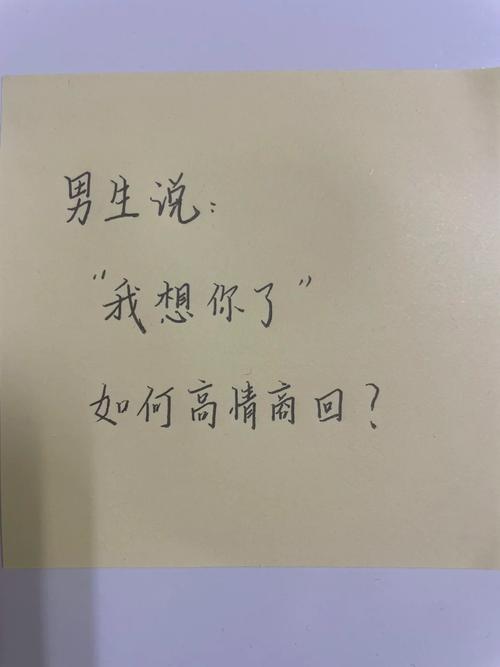 男生说：
“我想你了”
如何高情商回？